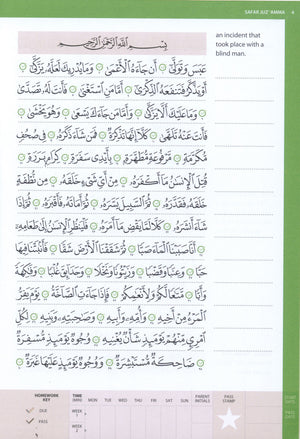 SAFAR JUZ' AMMA 4
بِسْمِ ٱللَّهِ ٱلرَّحْمَٰنِ ٱلرَّحِيمِ
عَبَسَ وَتَوَلَّىٰٓ ۝ أَن جَآءَهُ ٱلْأَعْمَىٰ ۝ وَمَا يُدْرِيكَ لَعَلَّهُۥ يَزَّكَّىٰٓ ۝
أَوْ يَذَّكَّرُ فَتَنفَعَهُ ٱلذِّكْرَىٰٓ ۝ أَمَّا مَنِ ٱسْتَغْنَىٰ ۝ فَأَنتَ لَهُۥ تَصَدَّىٰ ۝
وَمَا عَلَيْكَ أَلَّا يَزَّكَّىٰ ۝ وَأَمَّا مَن جَآءَكَ يَسْعَىٰ ۝ وَهُوَ يَخْشَىٰ ۝
فَأَنتَ عَنْهُ تَلَهَّىٰ ۝ كَلَّآ إِنَّهَا تَذْكِرَةٌ ۝ فَمَن شَآءَ ذَكَرَهُۥ ۝ فِى صُحُفٍ
مُّكَرَّمَةٍ ۝ مَّرْفُوعَةٍ مُّطَهَّرَةٍۭ ۝ بِأَيْدِى سَفَرَةٍ ۝ كِرَامٍۭ بَرَرَةٍ ۝
قُتِلَ ٱلْإِنسَٰنُ مَآ أَكْفَرَهُۥ ۝ مِنْ أَىِّ شَىْءٍ خَلَقَهُۥ ۝ مِن نُّطْفَةٍ
خَلَقَهُۥ فَقَدَّرَهُۥ ۝ ثُمَّ ٱلسَّبِيلَ يَسَّرَهُۥ ۝ ثُمَّ أَمَاتَهُۥ فَأَقْبَرَهُۥ ۝ ثُمَّ إِذَا
شَآءَ أَنشَرَهُۥ ۝ كَلَّا لَمَّا يَقْضِ مَآ أَمَرَهُۥ ۝ فَلْيَنظُرِ ٱلْإِنسَٰنُ إِلَىٰ طَعَامِهِۦٓ ۝
أَنَّا صَبَبْنَا ٱلْمَآءَ صَبًّا ۝ ثُمَّ شَقَقْنَا ٱلْأَرْضَ شَقًّا ۝ فَأَنۢبَتْنَا فِيهَا
حَبًّا ۝ وَعِنَبًا وَقَضْبًا ۝ وَزَيْتُونًا وَنَخْلًا ۝ وَحَدَآئِقَ غُلْبًا ۝ وَفَٰكِهَةً
وَأَبًّا ۝ مَّتَٰعًا لَّكُمْ وَلِأَنْعَٰمِكُمْ ۝ فَإِذَا جَآءَتِ ٱلصَّآخَّةُ ۝ يَوْمَ يَفِرُّ
ٱلْمَرْءُ مِنْ أَخِيهِ ۝ وَأُمِّهِۦ وَأَبِيهِ ۝ وَصَٰحِبَتِهِۦ وَبَنِيهِ ۝ لِكُلِّ
ٱمْرِئٍ مِّنْهُمْ يَوْمَئِذٍ شَأْنٌ يُغْنِيهِ ۝ وُجُوهٌ يَوْمَئِذٍ مُّسْفِرَةٌ ۝
ضَاحِكَةٌ مُّسْتَبْشِرَةٌ ۝ وَوُجُوهٌ يَوْمَئِذٍ عَلَيْهَا غَبَرَةٌ ۝
an incident
that took place with a
blind man.
HOMEWORK KEY TIME (MIN) MON TUE WED THU FRI SAT SUN PARENT INITIALS PASS STAMP START DATE
DUE WEEK 1
PASS WEEK 2 PASS DATE